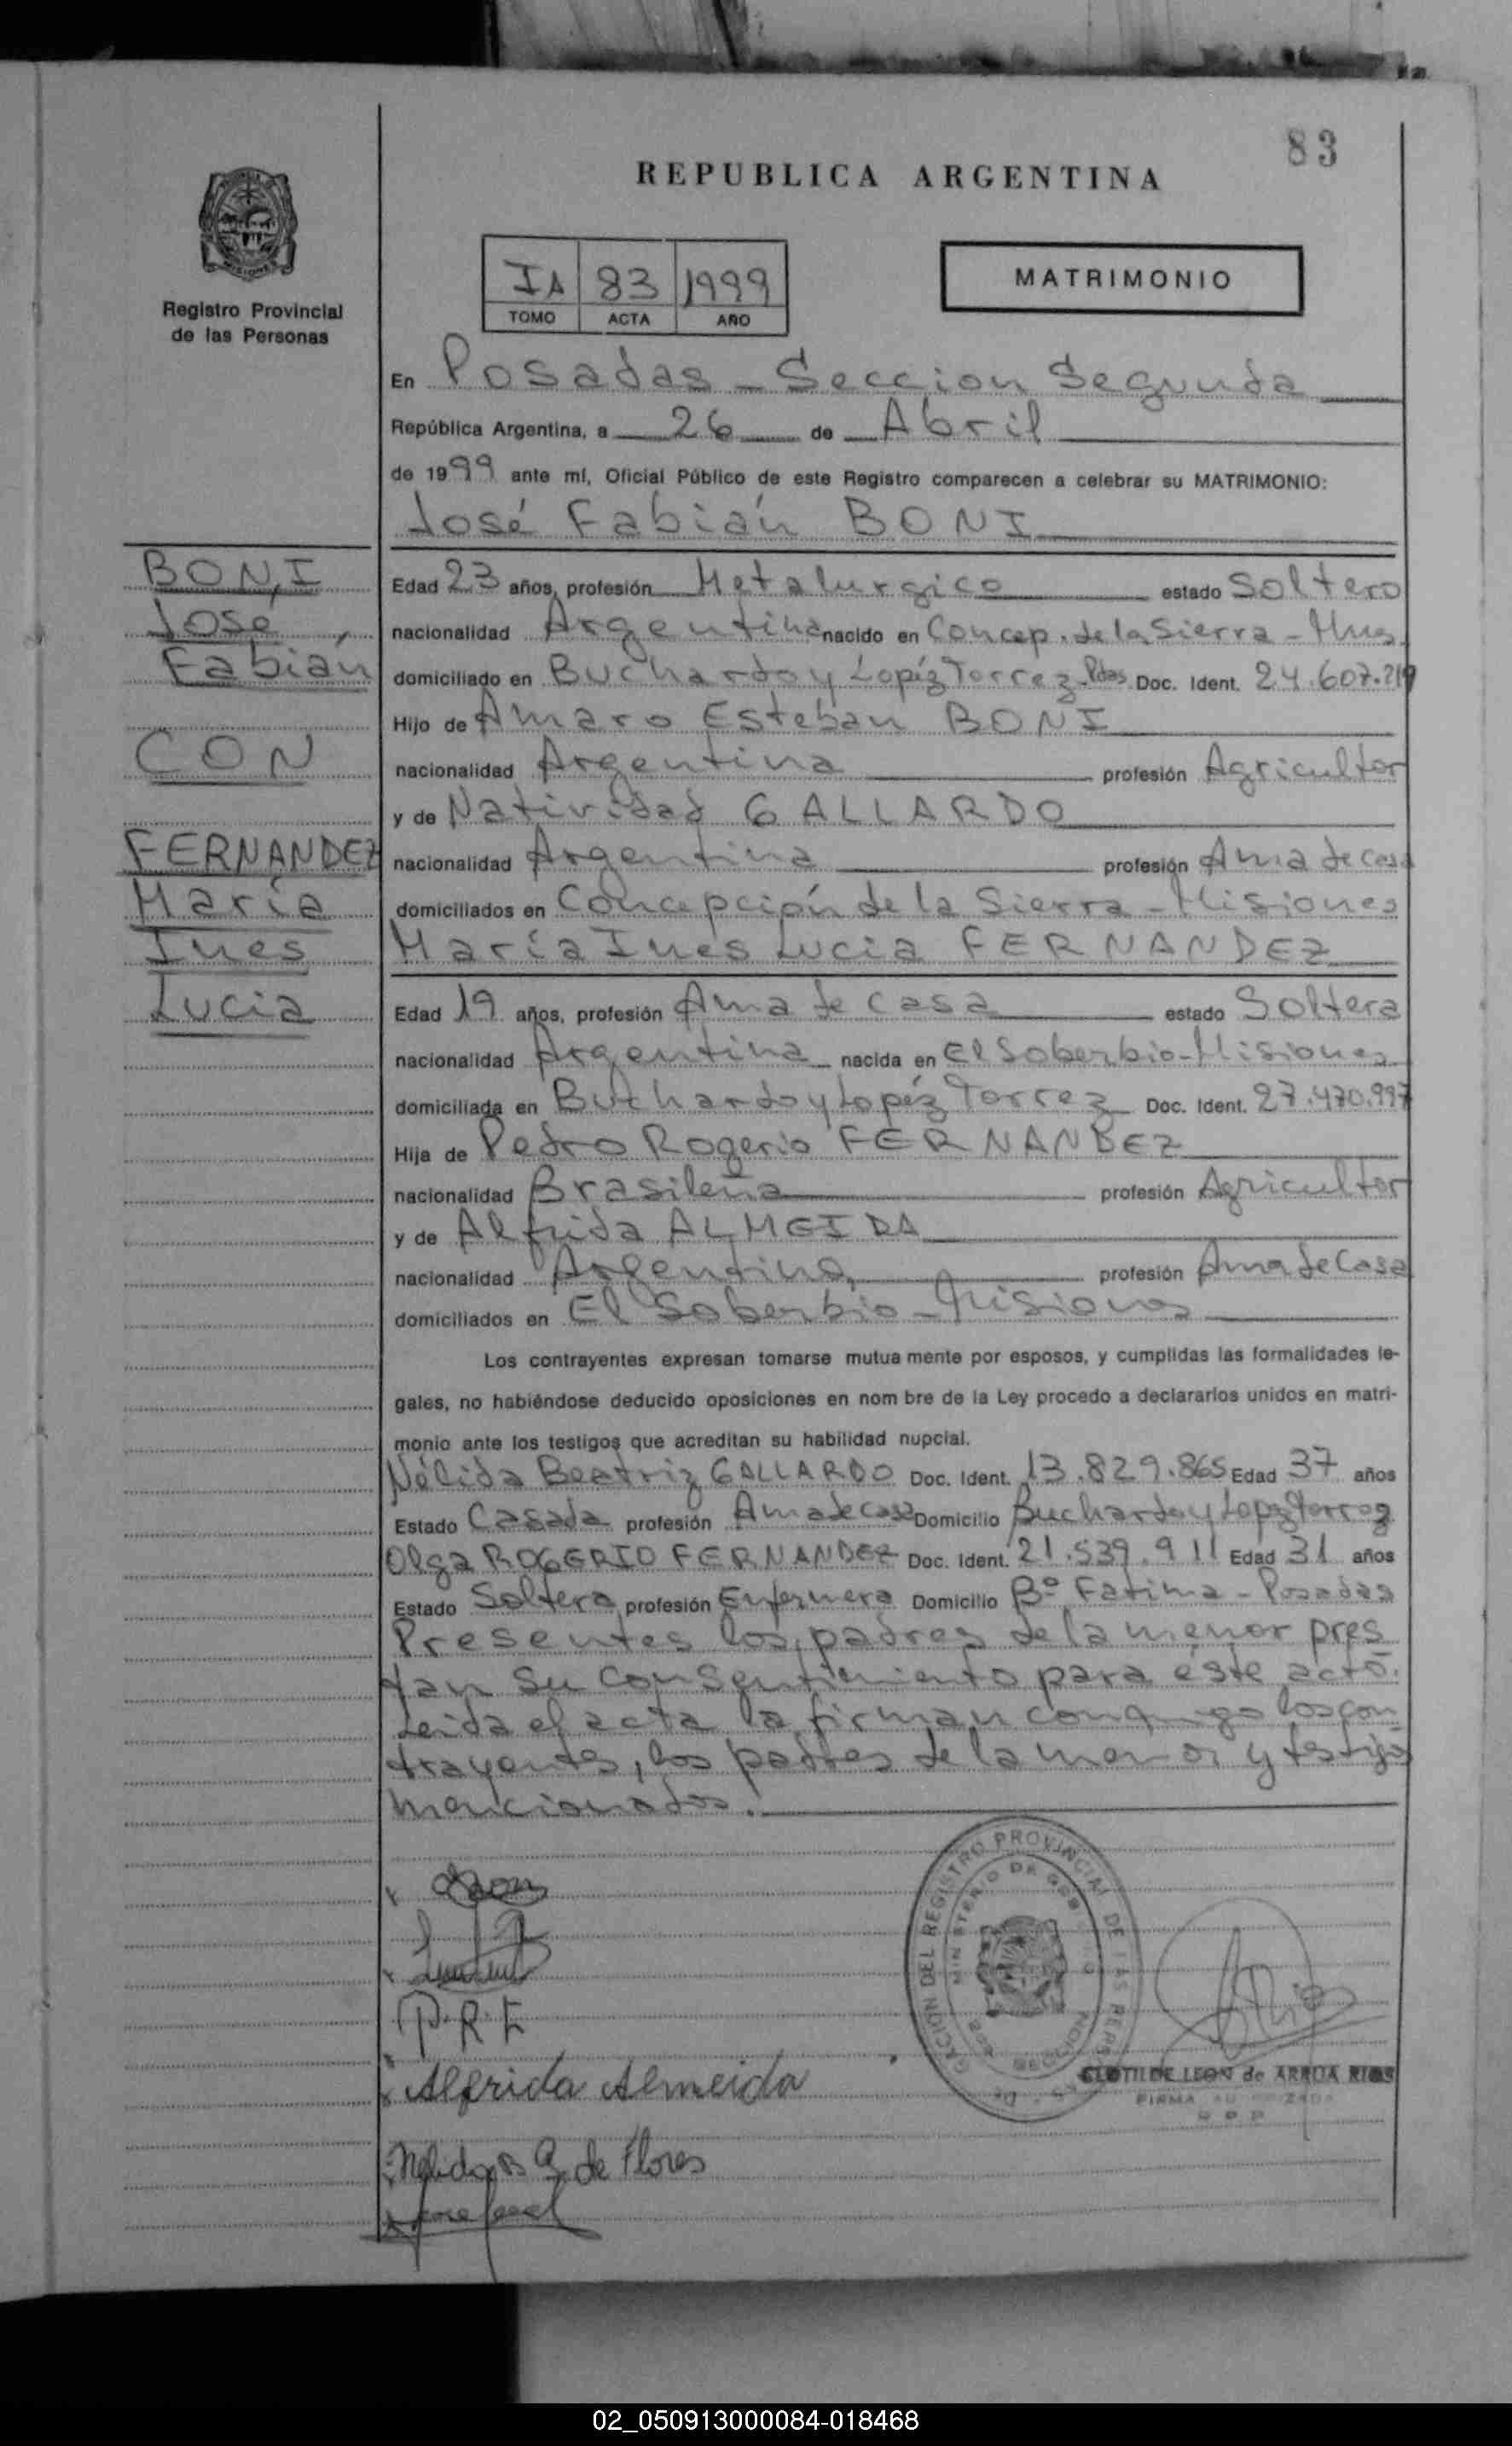 83
REPUBLICA ARGENTINA
MISIONES
Registro Provincial
de las Personas
IA 83 1999
TOMO ACTA AÑO
MATRIMONIO
En Posadas - Seccion Segunda
República Argentina, a 26 de Abril
de 1999 ante mí, Oficial Público de este Registro comparecen a celebrar su MATRIMONIO:
José Fabián BONI
BONI
José
Fabián
CON
FERNANDEZ
María
Ines
Lucia
Edad 23 años, profesión Metalurgico estado Soltero
nacionalidad Argentina nacido en Concep. de la Sierra - Mnes
domiciliado en Buchardo y Lopéz Torrez - Pdas Doc. Ident. 24.607.219
Hijo de Amaro Esteban BONI
nacionalidad Argentina profesión Agricultor
y de Natividad GALLARDO
nacionalidad Argentina profesión Ama de casa
domiciliados en Concepción de la Sierra - Misiones
María Ines Lucia FERNANDEZ
Edad 19 años, profesión Ama de casa estado Soltera
nacionalidad Argentina nacida en El Soberbio - Misiones
domiciliada en Buchardo y Lopéz Torrez Doc. Ident. 27.470.997
Hija de Pedro Rogerio FERNANDEZ
nacionalidad Brasileña profesión Agricultor
y de Alfrida ALMEIDA
nacionalidad Argentina profesión Ama de Casa
domiciliados en El Soberbio - Misiones
Los contrayentes expresan tomarse mutua mente por esposos, y cumplidas las formalidades le-
gales, no habiéndose deducido oposiciones en nom bre de la Ley procedo a declararlos unidos en matri-
monio ante los testigos que acreditan su habilidad nupcial.
Nélida Beatriz GALLARDO Doc. Ident. 13.829.865 Edad 37 años
Estado Casada profesión Ama de casa Domicilio Buchardo y Lopez Torrez
Olga ROGERIO FERNANDEZ Doc. Ident. 21.539.911 Edad 31 años
Estado Soltera profesión Enfermera Domicilio Bº Fatima - Posadas
Presentes los padres de la menor pres
tan su consentimiento para éste acto.
Leida el acta la firman conmigo los con
trayentes, los padres de la menor y testigos
mencionados.
P.R.F
Alfrida Almeida
Nelida B G. de Flores
REGISTRO PROVINCIAL DE LAS PERS
MINISTERIO DE GOB
CLOTILDE LEON de ARRUA RIOS
FIRMA AUTORIZADA
02_050913000084-018468